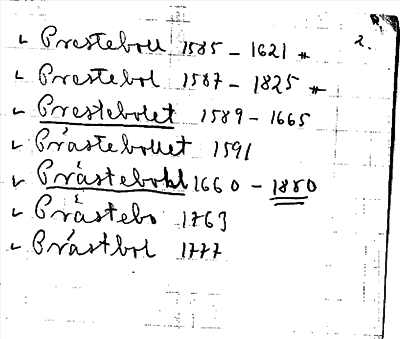 2.
✓ Presteboll 1585 – 1621 *
✓ Prestebol 1587 – 1825 *
✓ Prestebolet 1589 – 1665
✓ Prästebollet 1591
✓ Prästebohl 1660 – 1880
✓ Prästebo 1763
✓ Prästbol 1777